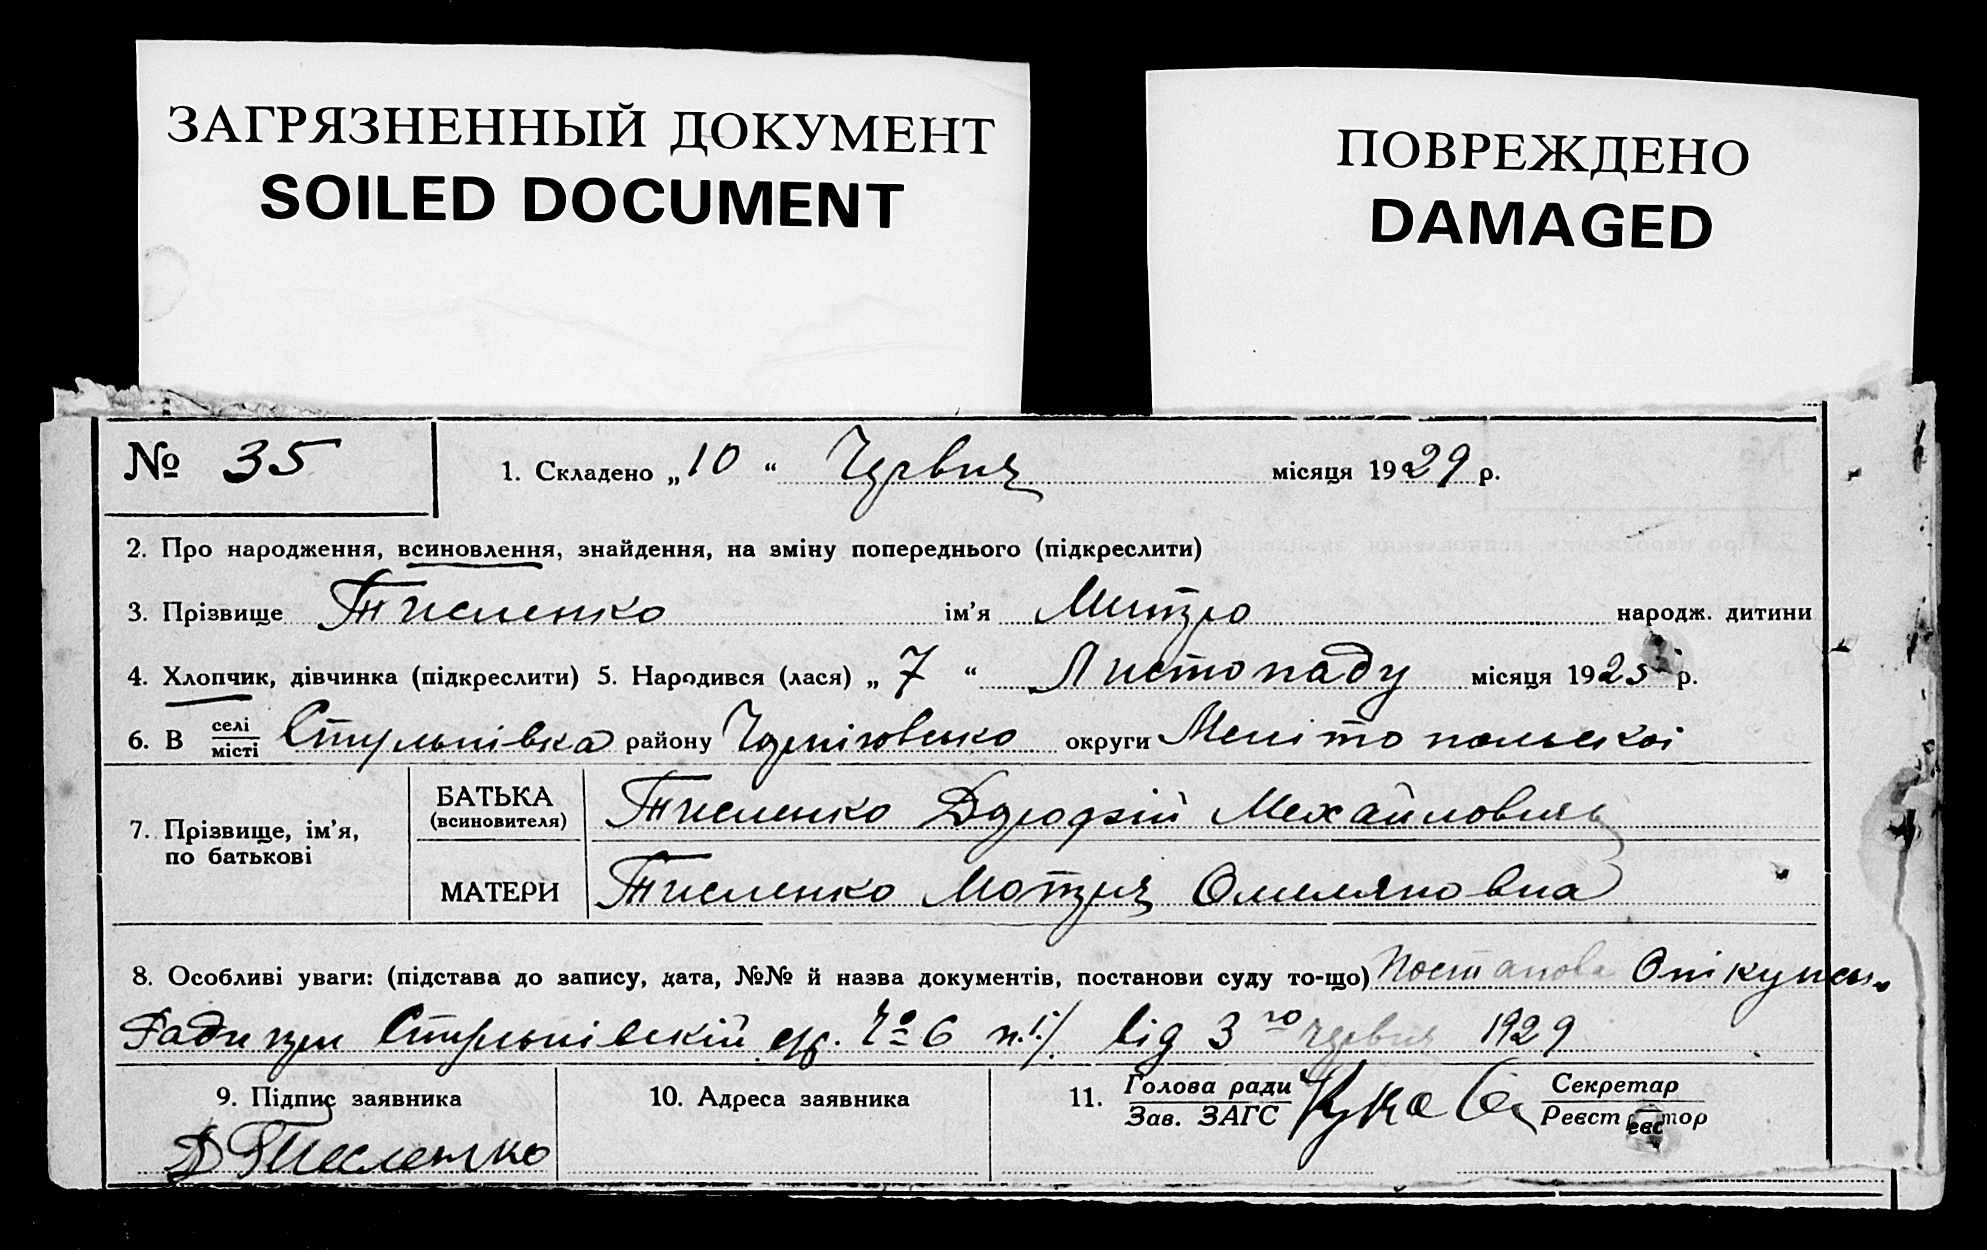 ЗАГРЯЗНЕННЫЙ ДОКУМЕНТ
SOILED DOCUMENT
ПОВРЕЖДЕНО
DAMAGED
№ 35
1. Складено „ 10 “ Червня місяця 1929 р.
2. Про народження, всиновлення, знайдення, на зміну попереднього (підкреслити)
3. Прізвище Тисленко ім’я Митро народж. дитини
4. Хлопчик, дівчинка (підкреслити) 5. Народився (лася) „ 7 “ Листопаду місяця 1925 р.
6. В селі місті Стульнівка району Черніговсько округи Мелітопольскоі
7. Прізвище, ім’я, по батькові
БАТЬКА (всиновителя) Тисленко Дорофій Михайлович
МАТЕРИ Тисленко Мотря Омеляновна
8. Особливі уваги: (підстава до запису, дата, №№ й назва документів, постанови суду то-що) Постанова Опікунск.
Ради при Стульнівскій с/р. № 6 п. 1/ від 3го червня 1929
9. Підпис заявника
Д Тисленко
10. Адреса заявника
11. Голова ради Зав. ЗАГС
Секретар Реєстратор